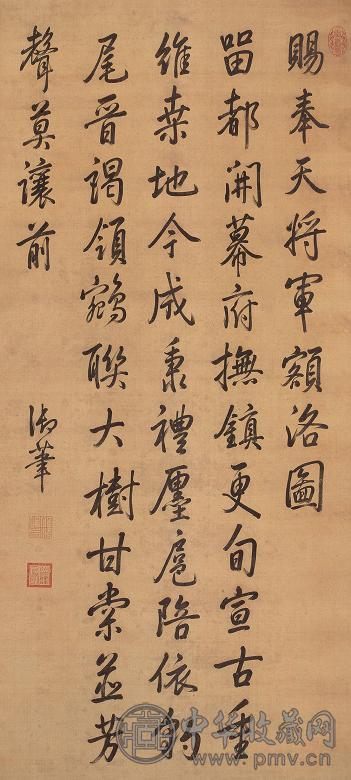 賜奉天將軍額洛圖
留都開幕府撫鎮更旬宣古重
維桑地今咸秉禮廛扈陪依豹
尾晉謁領鵷聯大樹甘棠並芳
聲莫讓前
御筆
中华收藏网
www.pmv.cn